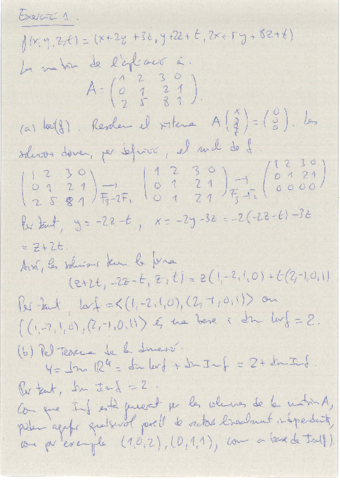 Exercici 1.
f(x,y,z,t) = (x+2y+3z, y+2z+t, 2x+5y+8z+t)
La matriu de l'aplicació és
A = (1 2 3 0
0 1 2 1
2 5 8 1).
(a) ker(f). Resolem el sistema A (x y z t) = (0 0 0). Les
solucions donen, per definició, el nucli de f.
(1 2 3 0 (1 2 3 0 (1 2 3 0
0 1 2 1 → 0 1 2 1 → 0 1 2 1
2 5 8 1) F3-2F1 0 1 2 1) F3-F2 0 0 0 0)
Per tant, y = -2z-t, x = -2y-3z = -2(-2z-t)-3z
= z+2t.
Així, les solucions tenen la forma
(z+2t, -2z-t, z, t) = z(1,-2,1,0) + t(2,-1,0,1)
Per tant, kerf = <(1,-2,1,0),(2,-1,0,1)> on
{(1,-2,1,0),(2,-1,0,1)} és una base i dim kerf = 2.
(b) Pel Teorema de la dimensió.
4 = dim ℝ⁴ = dim kerf + dim Imf = 2 + dim Imf
Per tant, dim Imf = 2.
Com que Imf està generat per les columnes de la matriu A,
podem agafar qualsevol parell de vectors linealment independents,
com per exemple (1,0,2), (0,1,1), com a base de Im(f).